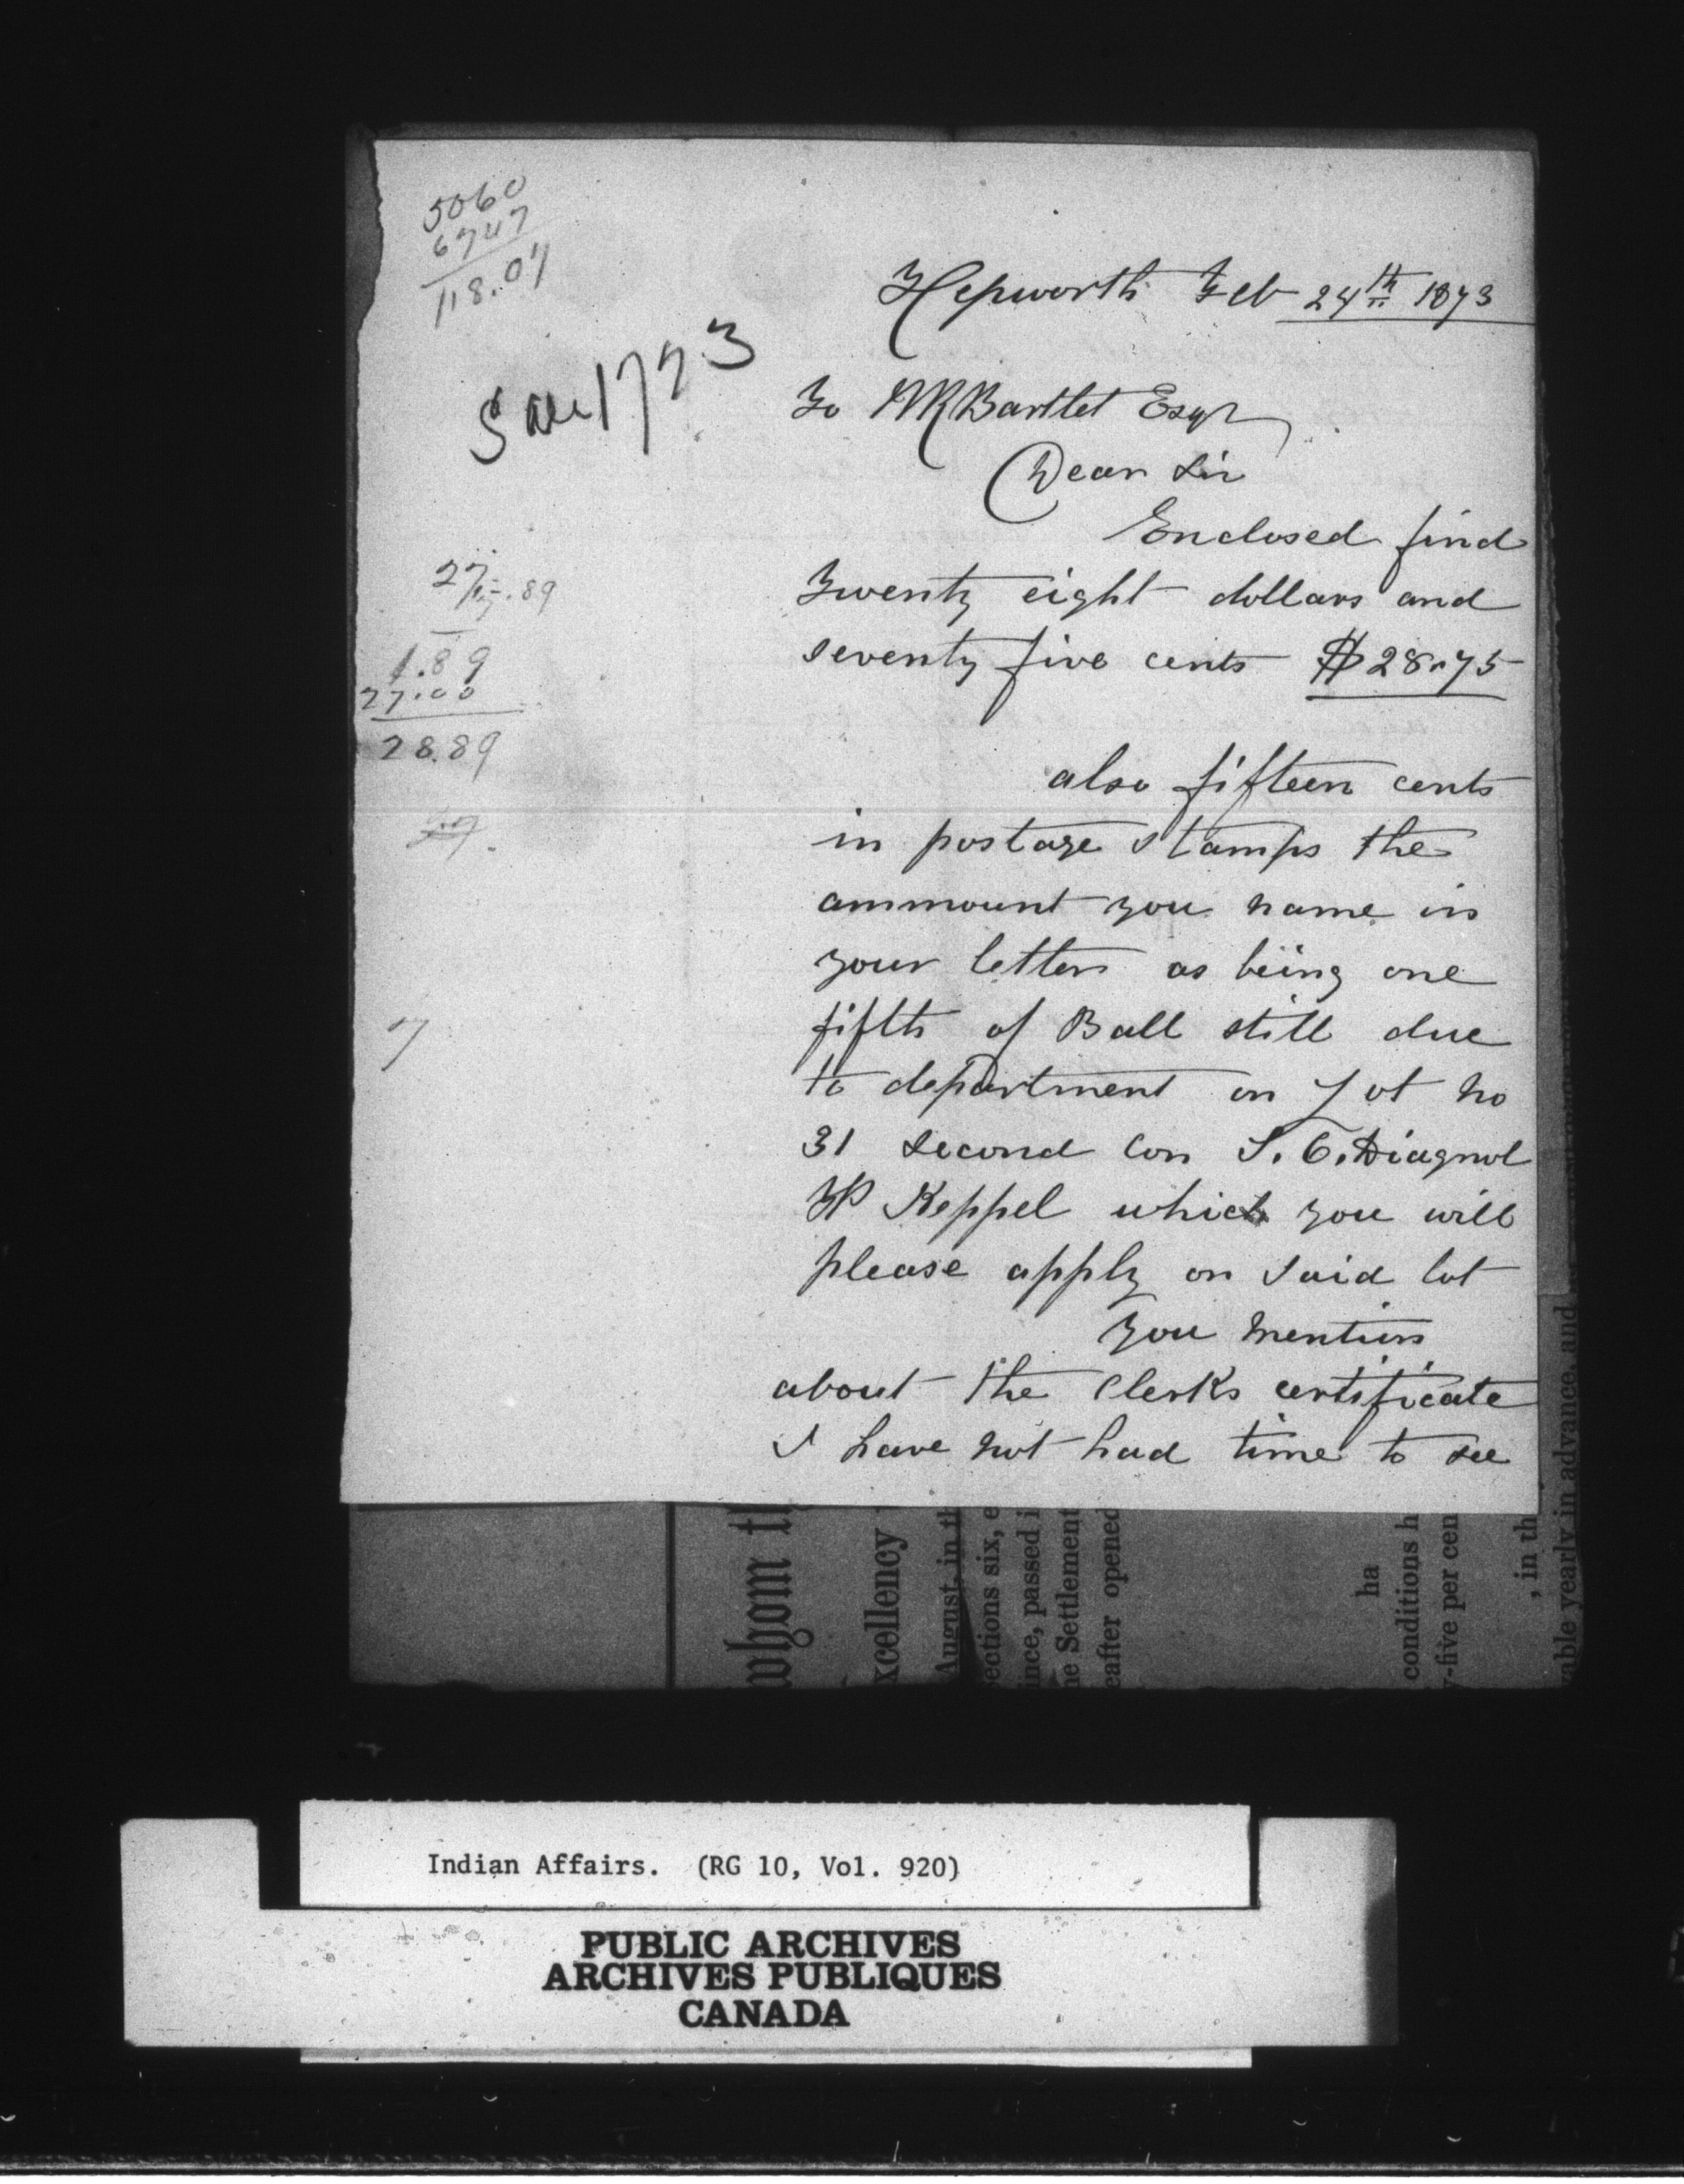 5060
6747
118.07
Hepworth Feb 24th 1873
Sale 1773
To WR Bartlet Esqr
Dear Sir
Enclosed find
Twenty eight dollars and
seventy five cents $28.75
27
.89
1.89
27.00
28.89
also fifteen cents
in postage stamps the
ammount you name in
your letter as being one
fifth of Ball still due
7
to department on Lot no
31 second Con S. C. Diagnol
TP Keppel which you will
please apply on said lot
you mention
about the Clerks certificate
I have not had time to see
whom th
xcellency
August, in th
ections six, e
ince, passed i
he Settlement
eafter opened
ha
conditions h
y-five per cen
, in th
able yearly in advance, and
Indian Affairs. (RG 10, Vol. 920)
PUBLIC ARCHIVES
ARCHIVES PUBLIQUES
CANADA